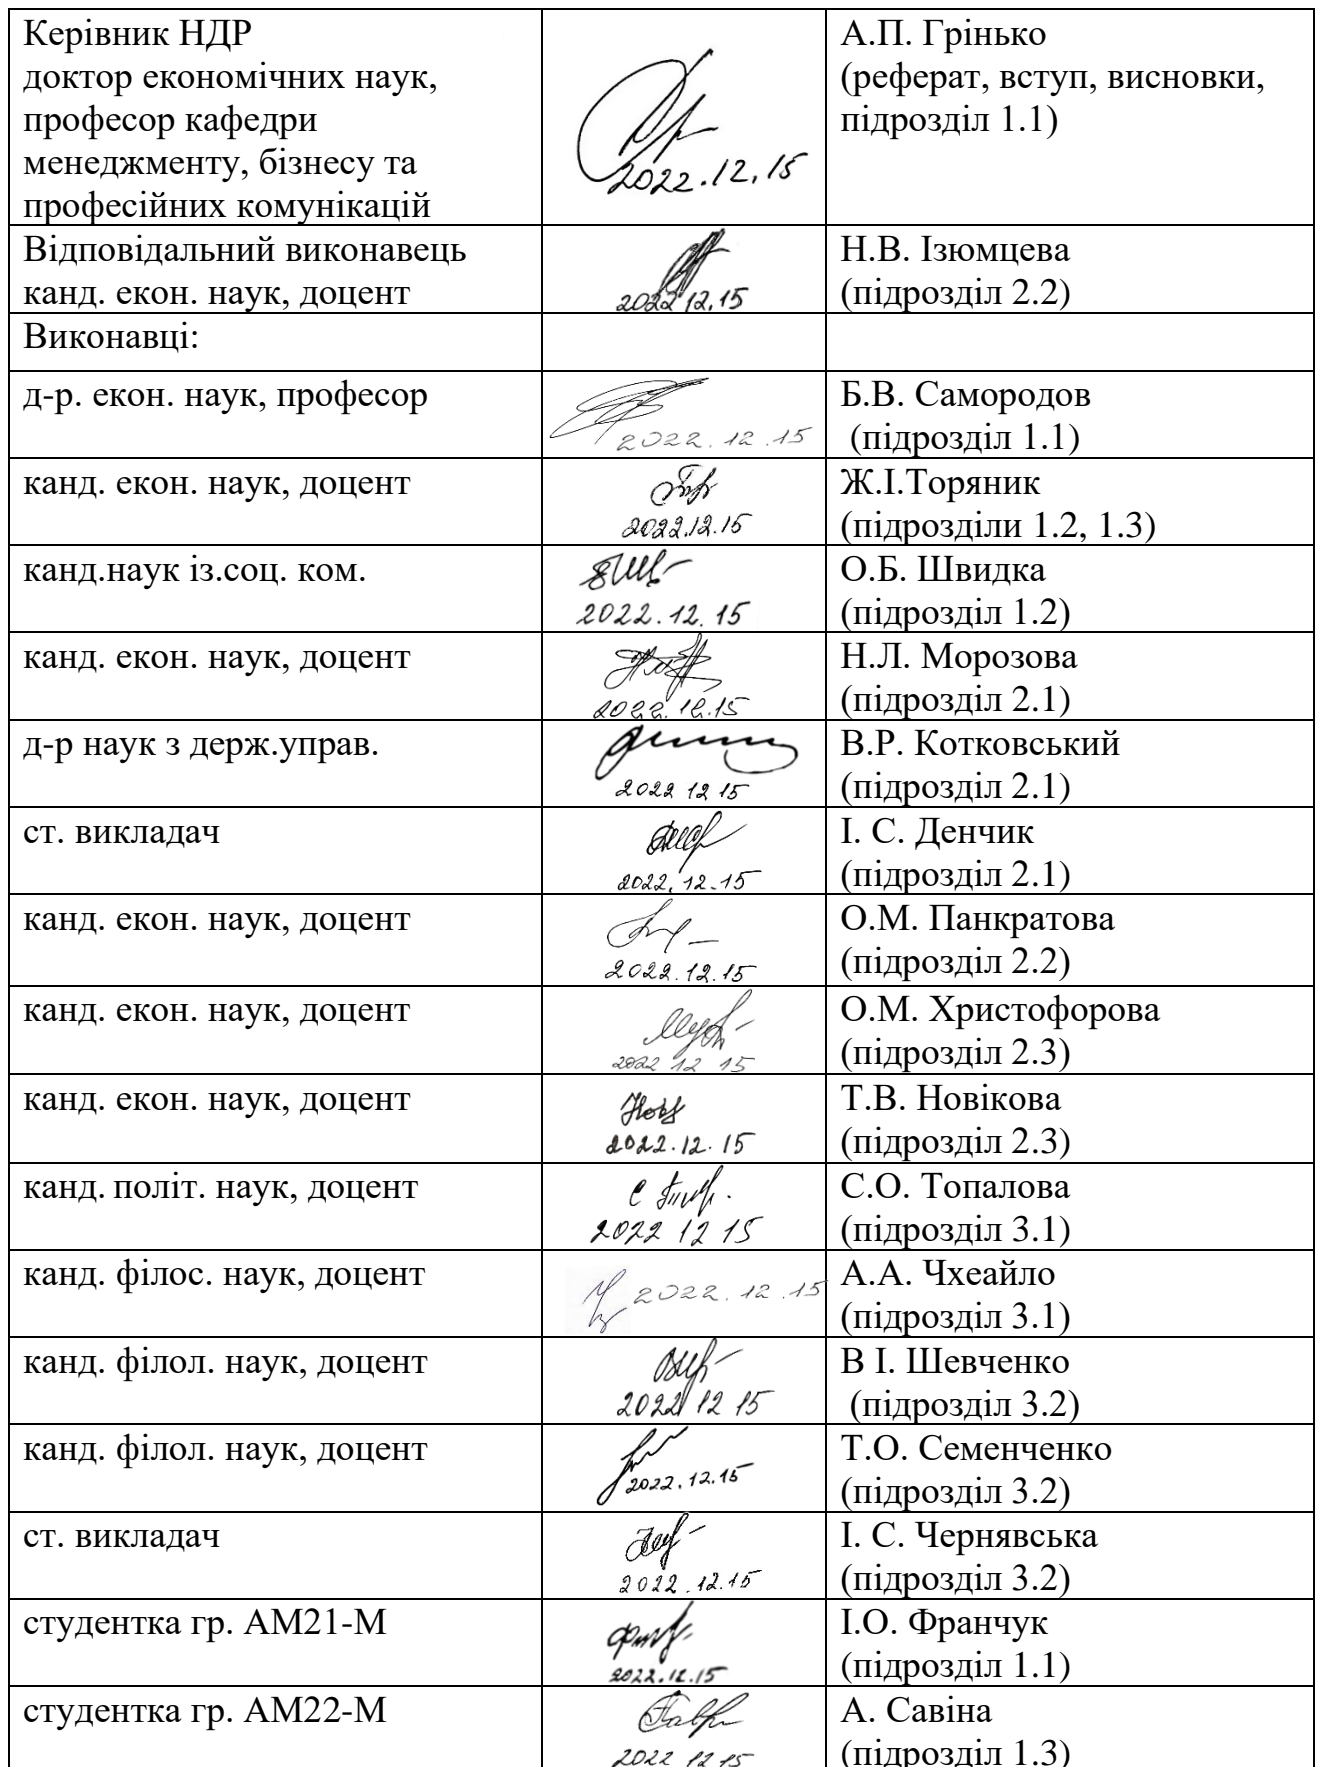 Керівник НДР
доктор економічних наук,
професор кафедри
менеджменту, бізнесу та
професійних комунікацій
2022.12.15
А.П. Грінько
(реферат, вступ, висновки,
підрозділ 1.1)
Відповідальний виконавець
канд. екон. наук, доцент
2022 12.15
Н.В. Ізюмцева
(підрозділ 2.2)
Виконавці:
д-р. екон. наук, професор
2022.12.15
Б.В. Самородов
(підрозділ 1.1)
канд. екон. наук, доцент
2022.12.15
Ж.І.Торяник
(підрозділи 1.2, 1.3)
канд.наук із.соц. ком.
2022.12.15
О.Б. Швидка
(підрозділ 1.2)
канд. екон. наук, доцент
2022.12.15
Н.Л. Морозова
(підрозділ 2.1)
д-р наук з держ.управ.
2022 12 15
В.Р. Котковський
(підрозділ 2.1)
ст. викладач
2022.12.15
І. С. Денчик
(підрозділ 2.1)
канд. екон. наук, доцент
2022.12.15
О.М. Панкратова
(підрозділ 2.2)
канд. екон. наук, доцент
2022 12 15
О.М. Христофорова
(підрозділ 2.3)
канд. екон. наук, доцент
2022.12.15
Т.В. Новікова
(підрозділ 2.3)
канд. політ. наук, доцент
2022 12 15
С.О. Топалова
(підрозділ 3.1)
канд. філос. наук, доцент
2022.12.15
А.А. Чхеайло
(підрозділ 3.1)
канд. філол. наук, доцент
2022 12 15
В І. Шевченко
(підрозділ 3.2)
канд. філол. наук, доцент
2022.12.15
Т.О. Семенченко
(підрозділ 3.2)
ст. викладач
2022.12.15
І. С. Чернявська
(підрозділ 3.2)
студентка гр. АМ21-М
2022.12.15
І.О. Франчук
(підрозділ 1.1)
студентка гр. АМ22-М
2022 12 15
А. Савіна
(підрозділ 1.3)